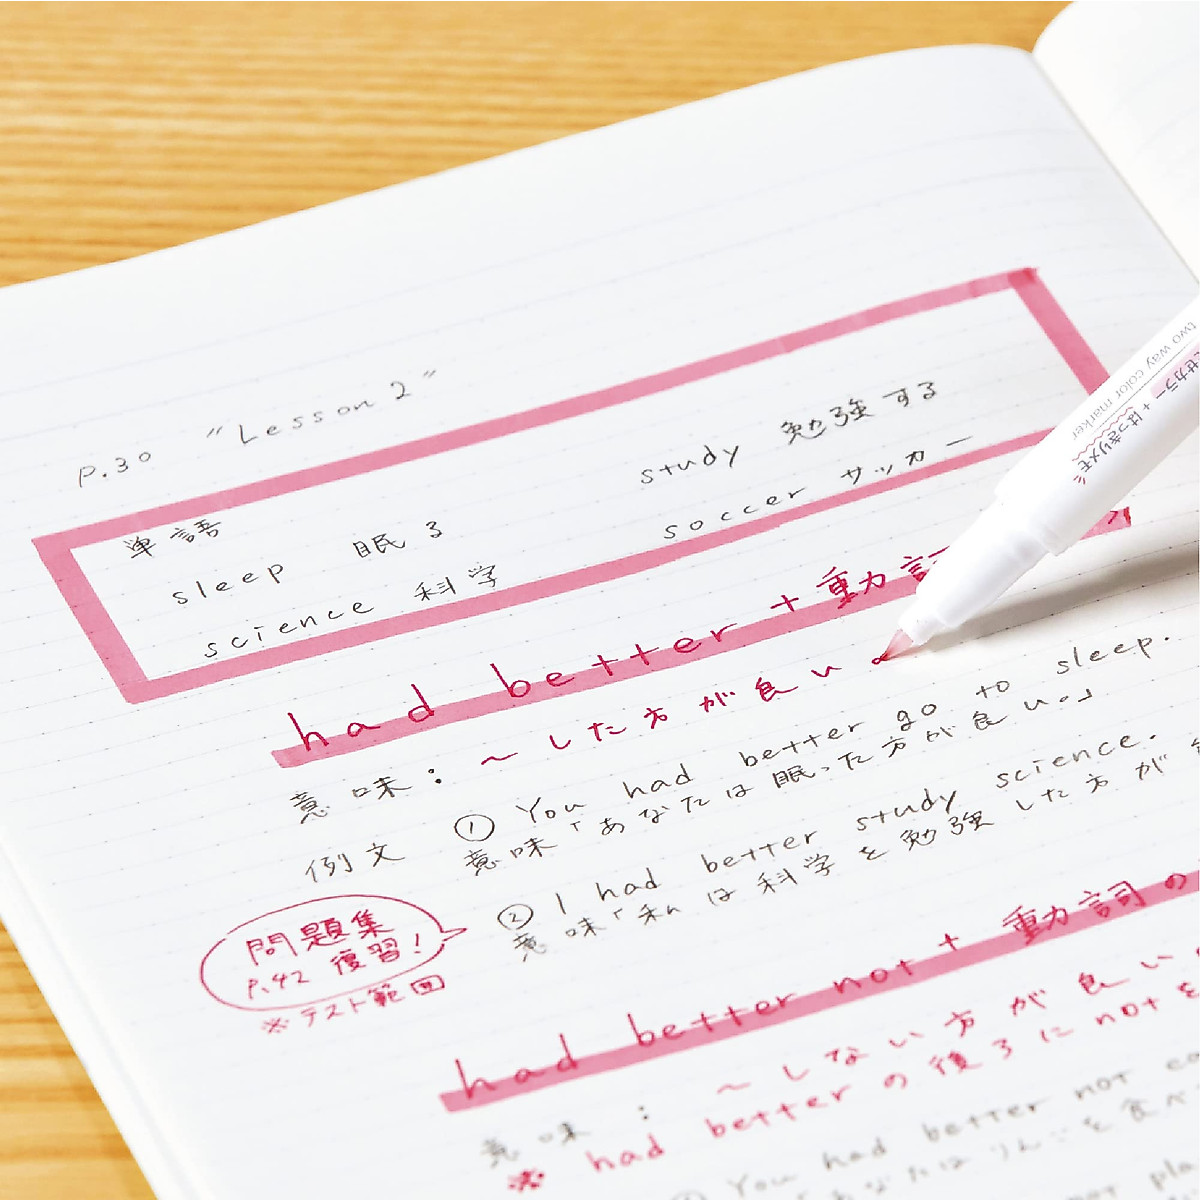 P.30 "Lesson 2"
単語
sleep 眠る
science 科学
study 勉強する
soccer サッカー
had better + 動詞
意味：〜した方が良い
例文 ① You had better go to sleep.
意味「あなたは眠った方が良い。」
② I had better study science.
意味「私は科学を勉強した方が
問題集
P.42 復習！
※テスト範囲
had better not + 動詞の
意味：〜しない方が良い
※ had better の後ろに not を
You had better not
あなたはりんごを食べ
two way color marker
せカラー + はっきりメモ"